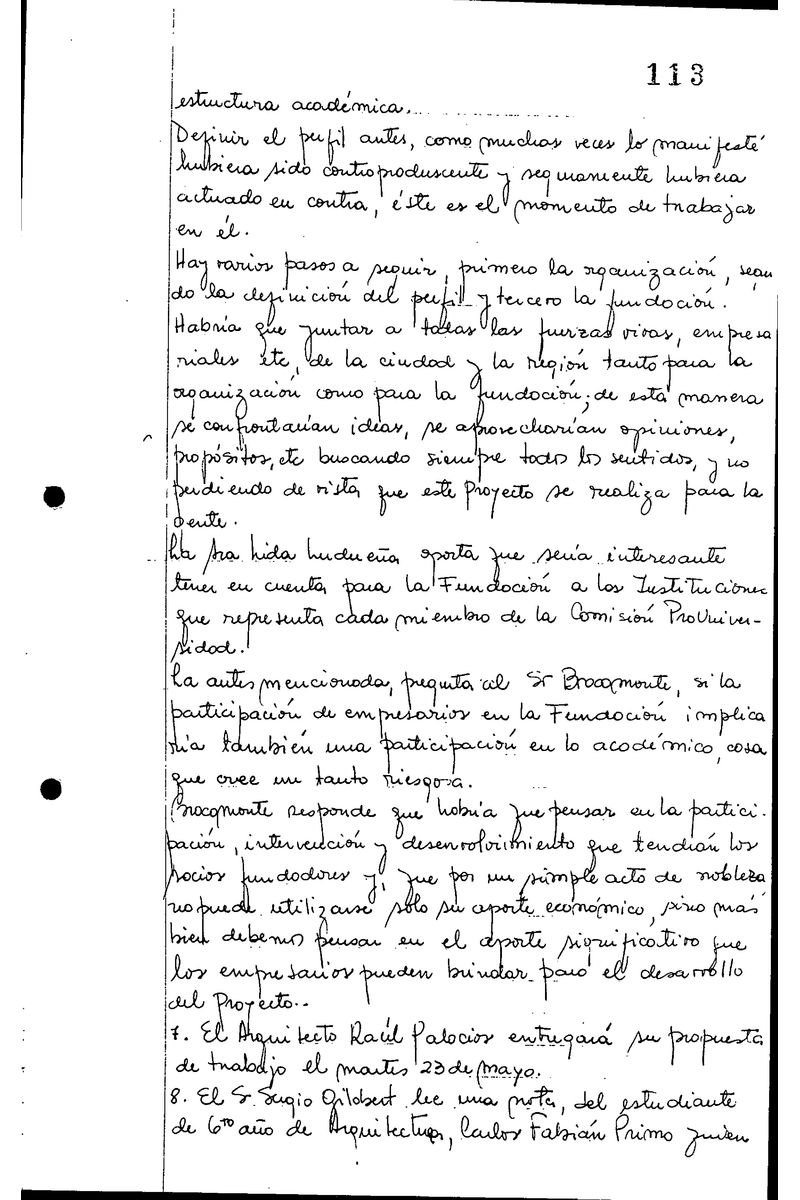 113
estructura académica.
Definir el perfil antes, como muchas veces lo manifesté
hubiera sido contraproduscente y seguramente hubiera
actuado en contra, éste es el momento de trabajar
en él.
Hay varios pasos a seguir, primero la organización, segun
do la definición del perfil y tercero la fundación.
Habría que juntar a todas las fuerzas vivas, empresa
riales etc, de la ciudad y la región tanto para la
organización como para la fundación; de esta manera
se confrontarían ideas, se aprovecharían opiniones,
propósitos, etc buscando siempre todos los sentidos, y no
perdiendo de vista que este Proyecto se realiza para la
gente.
La Sra Lida Ludueña aporta que sería interesante
tener en cuenta para la Fundación a las Instituciones
que representa cada miembro de la Comisión ProUniver-
sidad.
La antes mencionada, pregunta al Sr Bracamonte, si la
participación de empresarios en la Fundación implica
ría también una participación en lo académico, cosa
que cree un tanto riesgosa.
Bracamonte responde que habría que pensar en la partici-
pación, intervención y desenvolvimiento que tendrían los
socios fundadores y, que por un simple acto de nobleza
no puede utilizarse sólo su aporte económico, sino más
bien debemos pensar en el aporte significativo que
los empresarios pueden brindar para el desarrollo
del Proyecto..
7. El Arquitecto Raúl Palacios entregará su propuesta
de trabajo el martes 23 de mayo.
8. El Sr. Sergio Gilabert lee una nota, del estudiante
de 6to año de Arquitectura, Carlos Fabián Primo quien